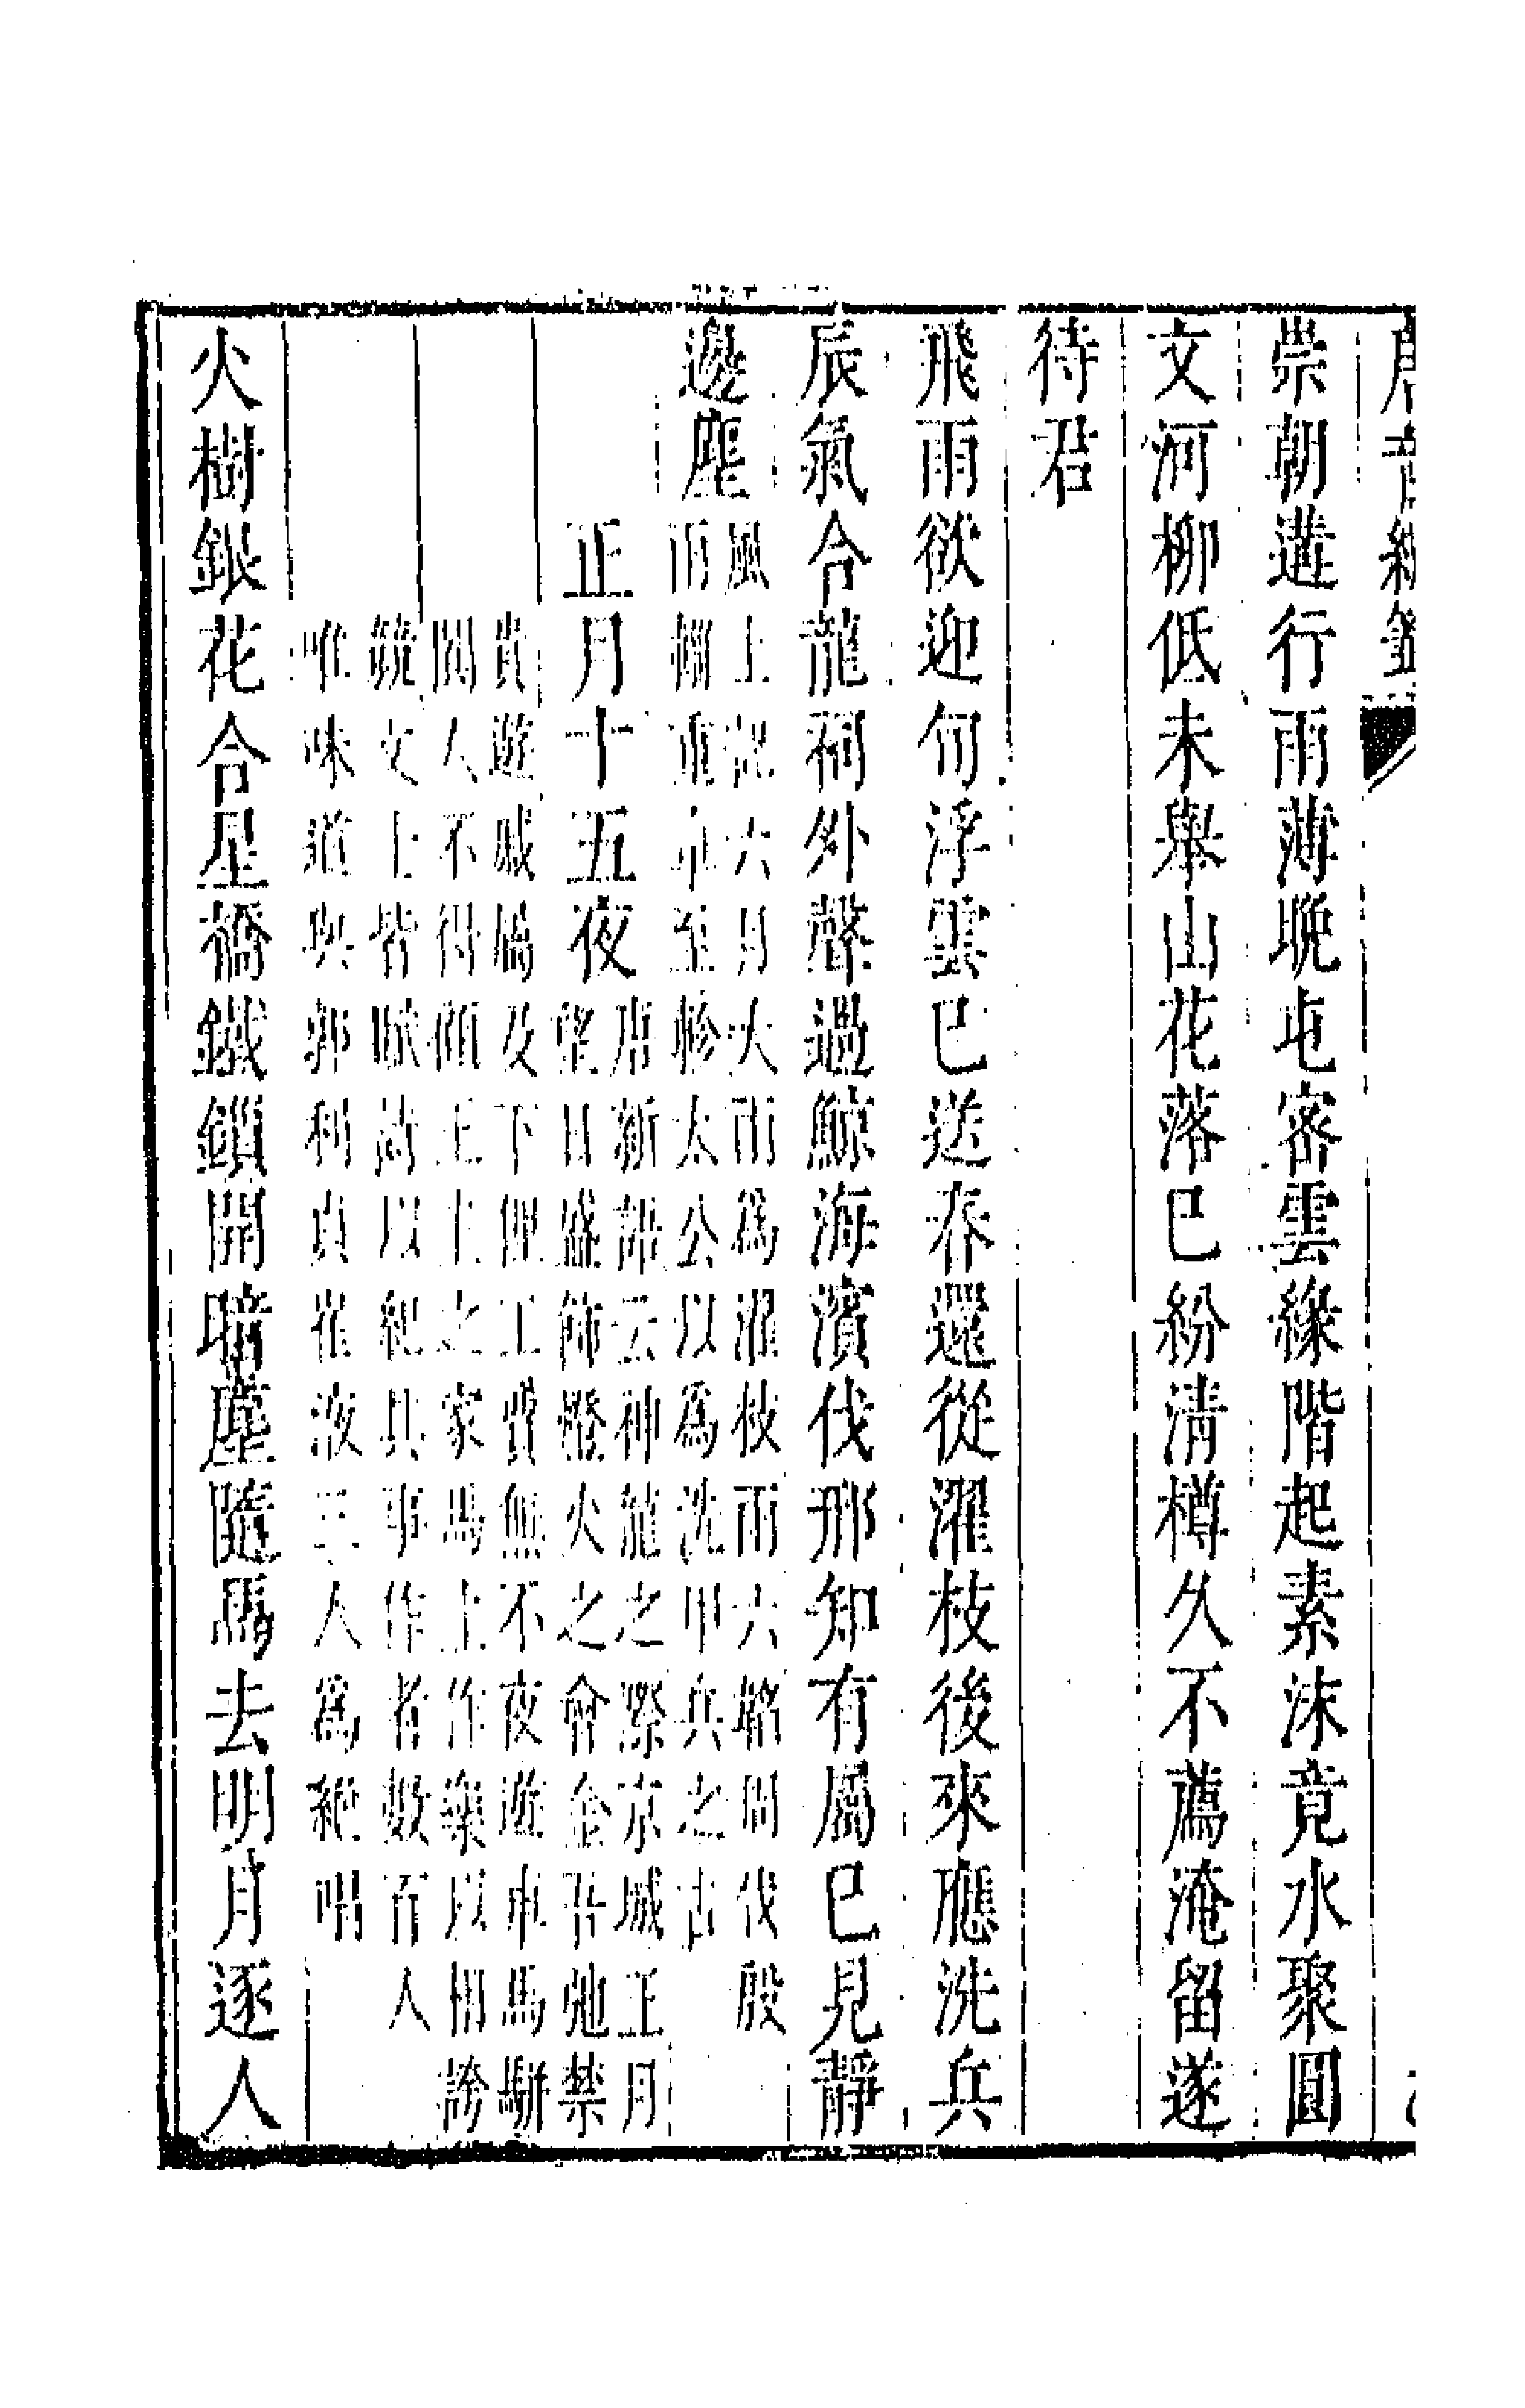 唐音統籤
崇朝遘行雨薄晚屯密雲緣階起素沫竟水聚圓
文河柳低未舉山花落已紛清樽久不薦淹留遂
待君
飛雨欲迎旬浮雲已送春還從濯枝後來應洗兵
辰氣合龍祠外聲過鯨海濱伐邢知有屬已見靜
邊塵
風土記六月大雨爲濯枝雨六韜周伐殷
雨輜重車至軫太公以爲洗甲兵之吉
正月十五夜
唐新語云神龍之際京城正月
望日盛飾燈火之會金吾弛禁
貴遊戚屬及下俚工賈無不夜遊車馬駢
闐人不得顧王主之家馬上作樂以相誇
競文士皆賦詩以紀其事作者數百人
唯味道與郭利貞崔液三人爲絕唱
火樹銀花合星橋鐵鎖開暗塵隨馬去明月逐人